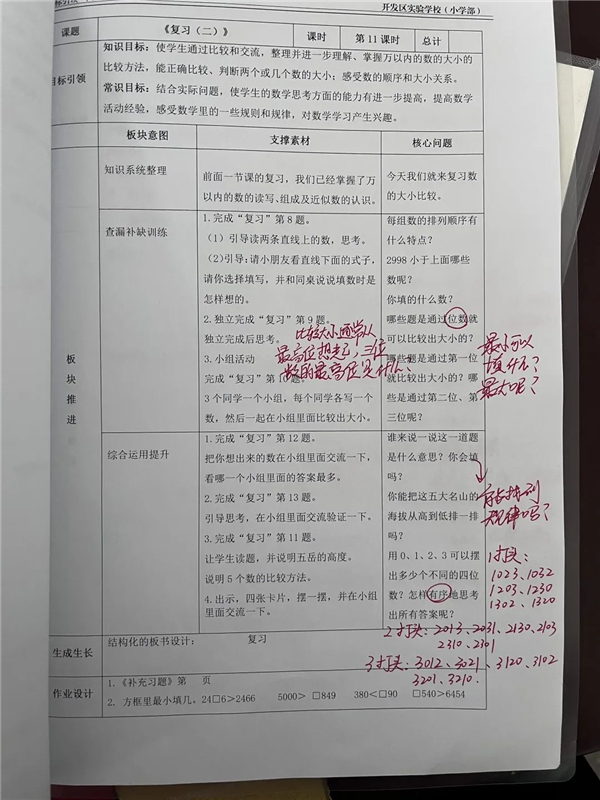 开发区实验学校（小学部）
课题
《复习（二）》
课时
第 11 课时
总计
目标引领
知识目标：使学生通过比较和交流，整理并进一步理解、掌握万以内的数的大小的
比较方法，能正确比较、判断两个或几个数的大小；感受数的顺序和大小关系。
常识目标：结合实际问题，使学生的数学思考方面的能力有进一步提高，提高数学
活动经验，感受数学里的一些规则和规律，对数学学习产生兴趣。
板块意图
支撑素材
核心问题
板块推进
知识系统整理
前面一节课的复习，我们已经掌握了万
以内的数的读写、组成及近似数的认识。
今天我们就来复习数
的大小比较。
查漏补缺训练
1.完成“复习”第 8 题。
（1）引导读两条直线上的数，思考。
（2）引导：请小朋友看直线下面的式子，
请你选择填写，并和同桌说说填数时是
怎样想的。
2.独立完成“复习”第 9 题。
独立完成后思考。
3.小组活动
完成“复习”第 10 题。
3 个同学一个小组，每个同学各写一个
数，然后一起在小组里面比较出大小。
比较大小通常从
最高位想起，三位
数的最高位是什么？
每组数的排列顺序有
什么特点？
2998 小于上面哪些
数呢？
你填的什么数？
哪些题是通过位数就
可以比较出大小的？
哪些题是通过第一位
就比较出大小的？哪
些题是通过第二位、第
三位呢？
最小可以
填什么？
最大呢？
综合运用提升
1.完成“复习”第 12 题。
把你想出来的数在小组里面交流一下，
看哪一个小组里面的答案最多。
2.完成“复习”第 13 题。
引导思考，在小组里面交流验证一下。
3.完成“复习”第 11 题。
让学生读题，并说明五岳的高度。
说明 5 个数的比较方法。
4.出示，四张卡片，摆一摆，并在小组
里面交流一下。
谁来说一说这一道题
是什么意思？你会填
吗？
你能把这五大名山的
海拔从高到低排一排
吗？
用 0、1、2、3 可以摆
出多少个不同的四位
数？怎样有序地思考
出所有答案呢？
有排列
规律吗？
1打头：
1023、1032
1203、1230
1302、1320
2打头：2013、2031、2130、2103
2310、2301
3打头：3012、3021、3120、3102
3201、3210.
生成生长
结构化的板书设计：
复习
作业设计
1.《补充习题》第 页
2. 方框里最小填几。24□6＞2466 5000＞□849 380＜□90 □540＞6454